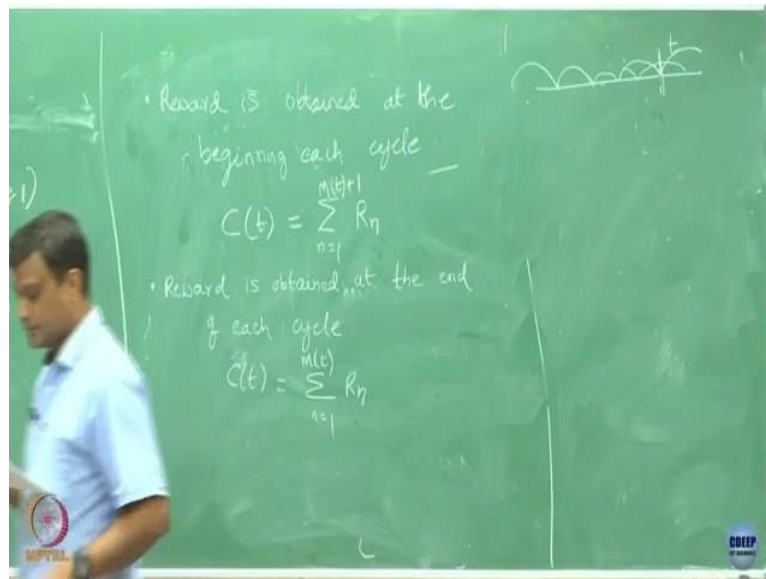 t
1)
• Reward is obtained at the
beginning each cycle
C(t) = \sum_{n=1}^{M(t)+1} R_n
• Reward is obtained at the end
of each cycle
C(t) = \sum_{n=1}^{M(t)} R_n
NPTEL
CDEEP
IIT BOMBAY